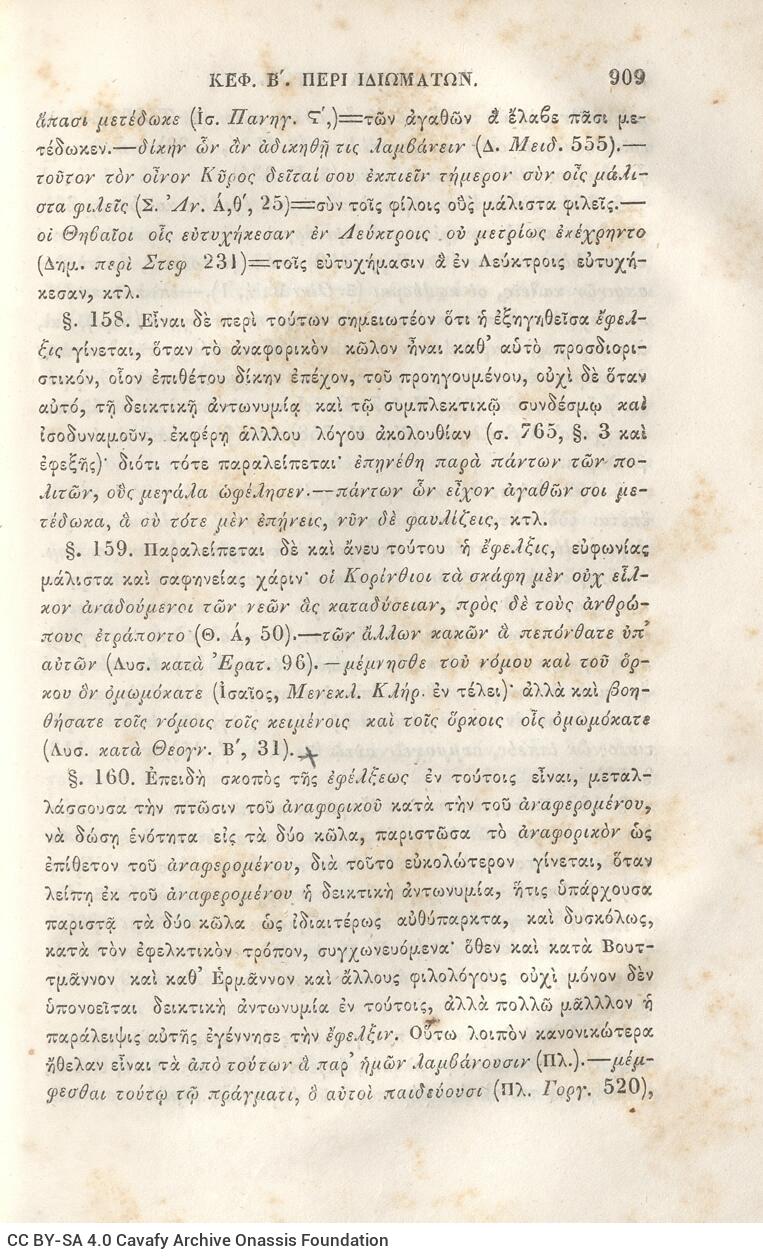 ΚΕΦ. Β΄. ΠΕΡΙ ΙΔΙΩΜΑΤΩΝ. 909
ἅπασι μετέδωκε (Ἰσ. Πανηγ. Ϛ΄,)=τῶν ἀγαθῶν ἃ ἔλαβε πᾶσι με-
τέδωκεν.—δίκην ὧν ἂν ἀδικηθῇ τις λαμβάνειν (Δ. Μειδ. 555).—
τοῦτον τὸν οἶνον Κῦρος δεῖταί σου ἐκπιεῖν τήμερον σὺν οἷς μάλι-
στα φιλεῖς (Ξ. Ἀν. Ά,θ΄, 25)=σὺν τοῖς φίλοις οὓς μάλιστα φιλεῖς.—
οἱ Θηβαῖοι οἷς εὐτυχήκεσαν ἐν Λεύκτροις οὐ μετρίως ἐκέχρηντο
(Δημ. περὶ Στεφ 231)=τοῖς εὐτυχήμασιν ἃ ἐν Λεύκτροις εὐτυχή-
κεσαν, κτλ.
§. 158. Εἶναι δὲ περὶ τούτων σημειωτέον ὅτι ἡ ἐξηγηθεῖσα ἔφελ-
ξις γίνεται, ὅταν τὸ ἀναφορικὸν κῶλον ᾖναι καθ᾽ αὑτὸ προσδιορι-
στικόν, οἷον ἐπιθέτου δίκην ἐπέχον, τοῦ προηγουμένου, οὐχὶ δὲ ὅταν
αὐτό, τῇ δεικτικῇ ἀντωνυμίᾳ καὶ τῷ συμπλεκτικῷ συνδέσμῳ καὶ
ἰσοδυναμοῦν, ἐκφέρῃ ἄλλλου λόγου ἀκολουθίαν (σ. 765, §. 3 καὶ
ἐφεξῆς)· διότι τότε παραλείπεται· ἐπῃνέθη παρὰ πάντων τῶν πο-
λιτῶν, οὓς μεγάλα ὠφέλησεν.—πάντων ὧν εἶχον ἀγαθῶν σοι με-
τέδωκα, ἃ σὺ τότε μὲν ἐπῄνεις, νῦν δὲ φαυλίζεις, κτλ.
§. 159. Παραλείπεται δὲ καὶ ἄνευ τούτου ἡ ἔφελξις, εὐφωνίας
μάλιστα καὶ σαφηνείας χάριν· οἱ Κορίνθιοι τὰ σκάφη μὲν οὐχ εἷλ-
κον ἀναδούμενοι τῶν νεῶν ἃς καταδύσειαν, πρὸς δὲ τοὺς ἀνθρώ-
πους ἐτράποντο (Θ. Ά, 50).—τῶν ἄλλων κακῶν ἃ πεπόνθατε ὑπ᾽
αὐτῶν (Λυσ. κατὰ Ἐρατ. 96).—μέμνησθε τοῦ νόμου καὶ τοῦ ὅρ-
κου ὃν ὀμωμόκατε (Ἰσαῖος, Μενεκλ. Κλήρ. ἐν τέλει)· ἀλλὰ καὶ βοη-
θήσατε τοῖς νόμοις τοῖς κειμένοις καὶ τοῖς ὅρκοις οἷς ὀμωμόκατε
(Λυσ. κατὰ Θεογν. Β΄, 31).
§. 160. Ἐπειδὴ σκοπὸς τῆς ἐφέλξεως ἐν τούτοις εἶναι, μεταλ-
λάσσουσα τὴν πτῶσιν τοῦ ἀναφορικοῦ κατὰ τὴν τοῦ ἀναφερομένου,
νὰ δώσῃ ἑνότητα εἰς τὰ δύο κῶλα, παριστῶσα τὸ ἀναφορικὸν ὡς
ἐπίθετον τοῦ ἀναφερομένου, διὰ τοῦτο εὐκολώτερον γίνεται, ὅταν
λείπῃ ἐκ τοῦ ἀναφερομένου ἡ δεικτικὴ ἀντωνυμία, ἥτις ὑπάρχουσα
παριστᾷ τὰ δύο κῶλα ὡς ἰδιαιτέρως αὐθύπαρκτα, καὶ δυσκόλως,
κατὰ τὸν ἐφελκτικὸν τρόπον, συγχωνευόμενα· ὅθεν καὶ κατὰ Βουτ-
τμάννον καὶ καθ᾽ Ἑρμᾶννον καὶ ἄλλους φιλολόγους οὐχὶ μόνον δὲν
ὑπονοεῖται δεικτικὴ ἀντωνυμία ἐν τούτοις, ἀλλὰ πολλῷ μᾶλλλον ἡ
παράλειψις αὐτῆς ἐγέννησε τὴν ἔφελξιν. Οὕτω λοιπὸν κανονικώτερα
ἤθελαν εἶναι τὰ ἀπὸ τούτων ἃ παρ᾽ ἡμῶν λαμβάνουσιν (Πλ.).—μέμ-
φεσθαι τούτῳ τῷ πράγματι, ὃ αὐτοὶ παιδεύουσι (Πλ. Γοργ. 520),
CC BY-SA 4.0 Cavafy Archive Onassis Foundation